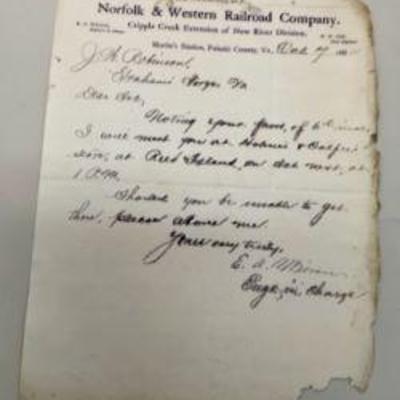 Norfolk & Western Railroad Company.
Cripple Creek Extension of New River Division.
Martin's Station, Pulaski County, Va., 7 188
J. W. Robinson,
Grahams Forge, Va
Dear Sir,
Noting your favor, of 6th inst
I will meet you at &
store, at Reed Island, on Sat next, at
1 P.M.
Should you be unable to get
there, please advise me.
Yours very truly,
E. A.
Engr. in Charge